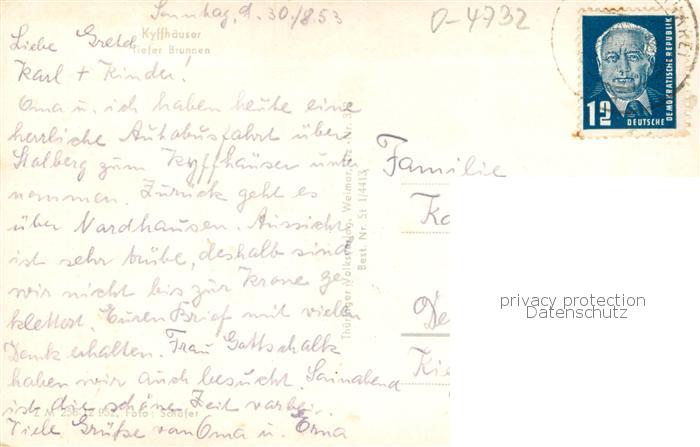 Sonntag, d. 30./8.53
D-4732
Kyffhäuser
Tiefer Brunnen
Liebe Gretel
Karl + Kinder!
Oma u. ich haben heute eine
herrliche Autobusfahrt über
Stolberg zum Kyffhäuser unter
nommen. Zurück geht es
über Nordhausen. Aussicht
ist sehr trübe, deshalb sind
wir nicht bis zur Krone ge-
klettert. Euren Brief mit vielen
Dank erhalten. Frau Gottschalk
haben wir auch besucht. Sonnabend
ist die schöne Zeit vorbei.
Viele Grüße von Oma u. Erna
Foto: Schäfer
Thüringer Volksverlag, Weimar
Best. Nr. St 1/4413
Familie
Ka
De
Kie
12
DEUTSCHE
DEMOKRATISCHE REPUBLIK
privacy protection
Datenschutz